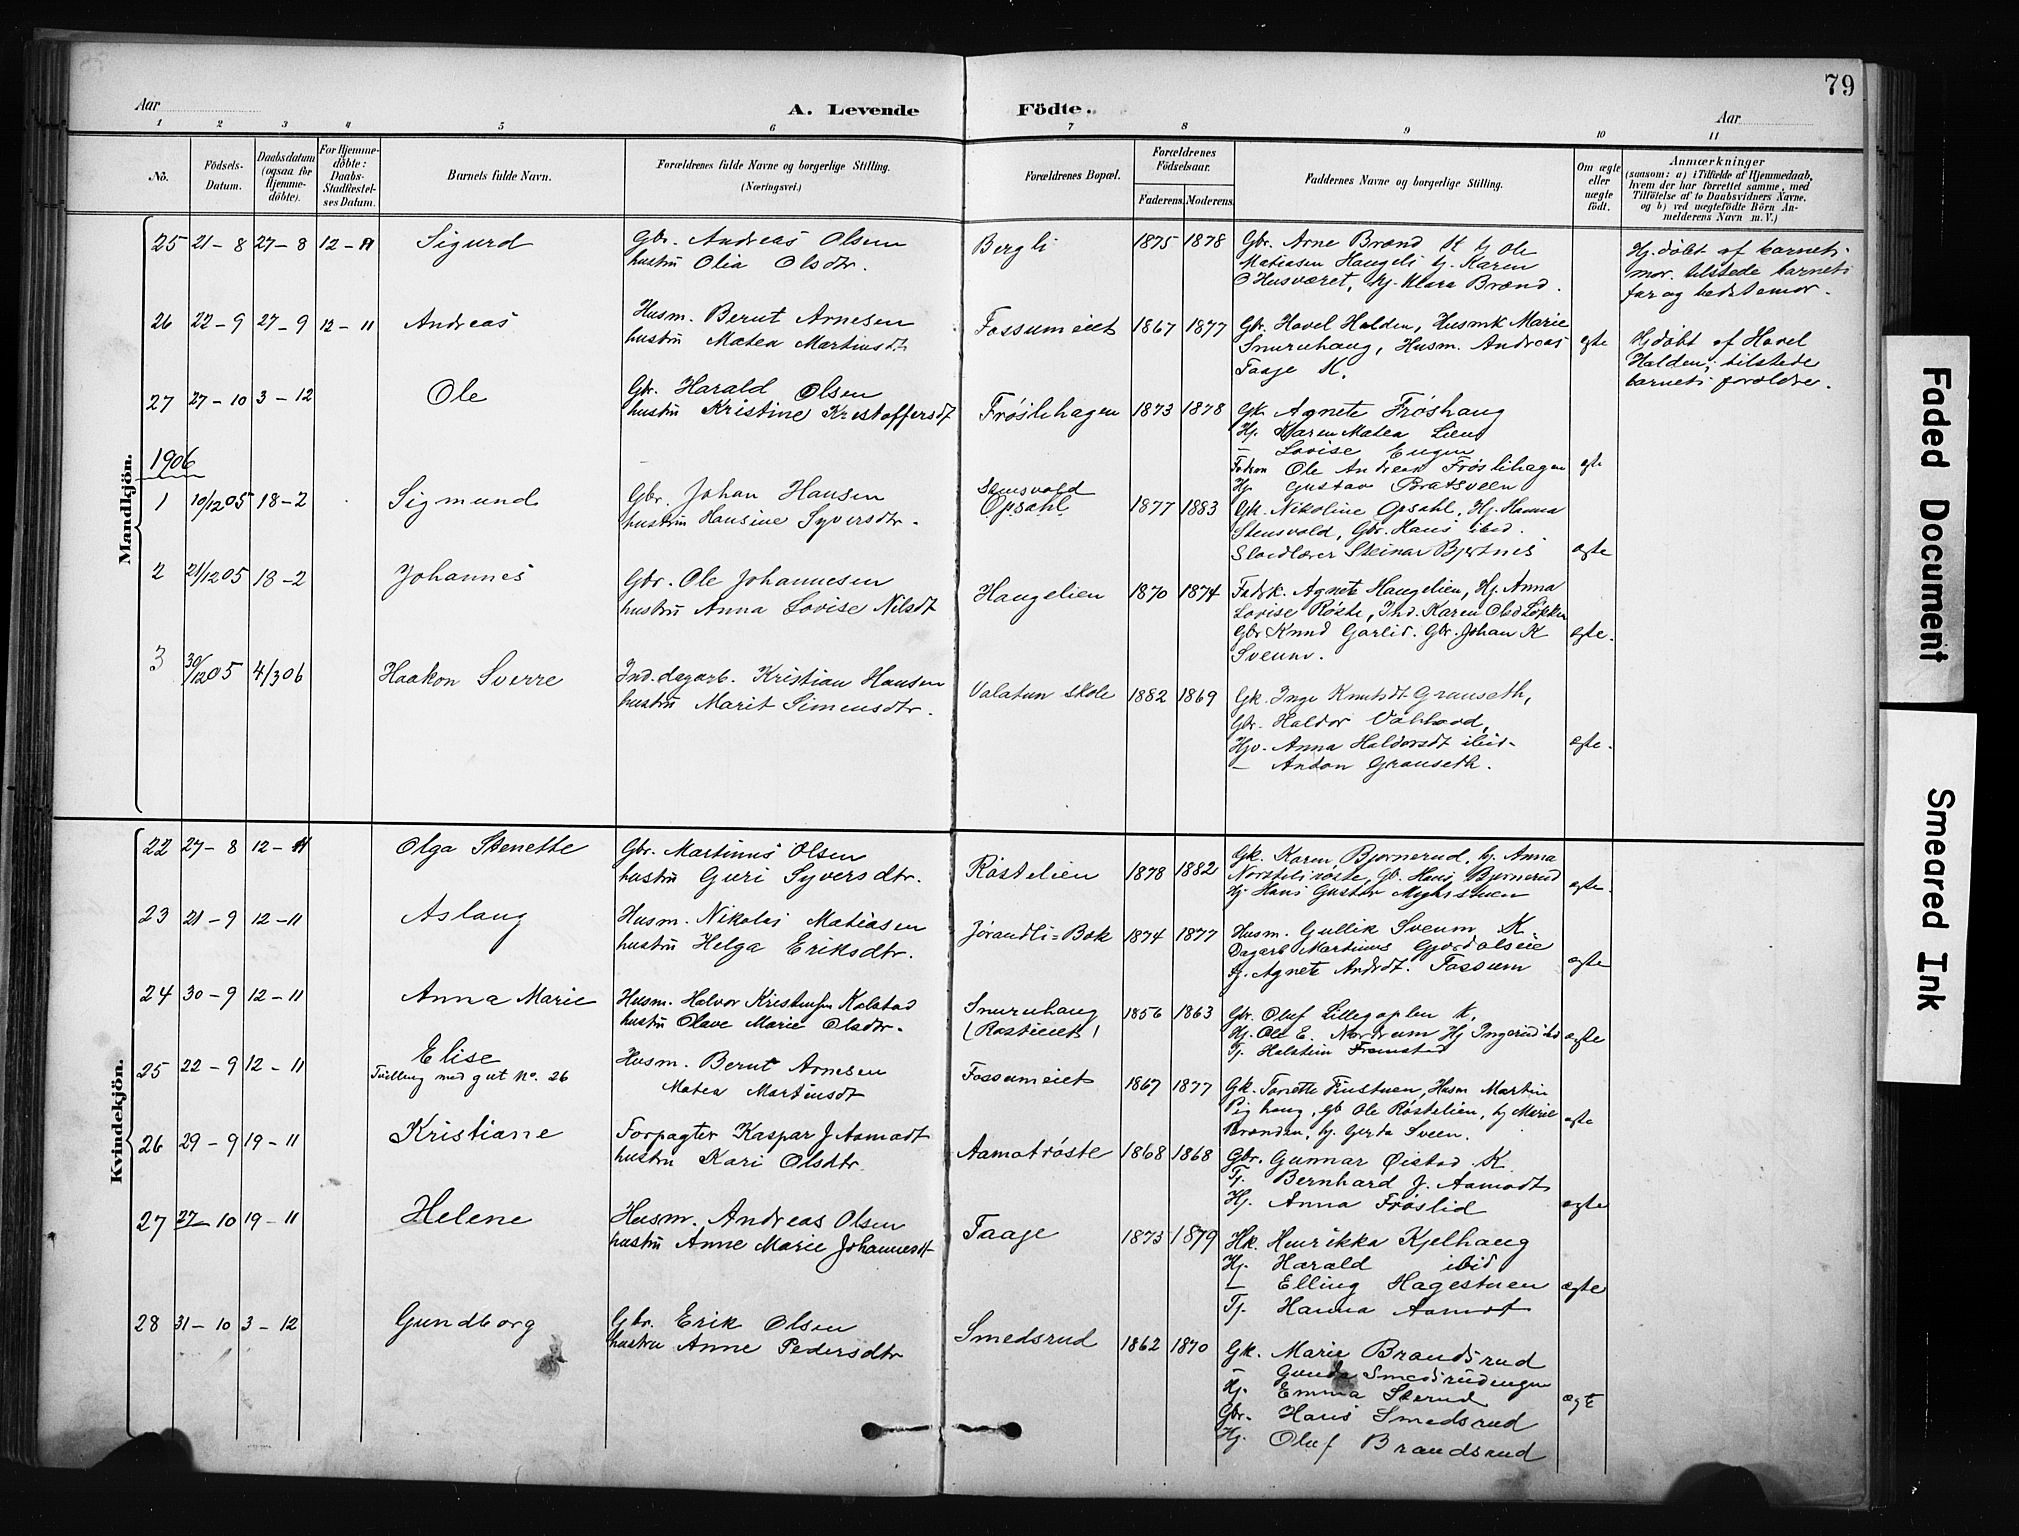 79
Aar
A. Levende Födte.
Aar
1 2 3 4 5 6 7 8 9 10 11
No.
Födsels-
Datum.
Daabsdatum
(ogsaa for
Hjemme-
döbte).
For Hjemme-
döbte:
Daabs-
Stadfæstel-
ses Datum.
Barnets fulde Navn.
Forældrenes fulde Navne og borgerlige Stilling.
(Næringsvei.)
Forældrenes Bopæl.
Forældrenes
Födselsaar.
Faderens. Moderens.
Faddernes Navne og borgerlige Stilling.
Om ægte
eller
uægte
födt.
Anmærkninger
(saasom: a) i Tilfælde af Hjemmedaab,
hvem der har forrettet samme, med
Tilföielse af to Daabsvidners Navne.
og b) ved uægtefödte Börn An-
melderens Navn m. V.)
Mandkjön.
25 21-8 27-8 12-11 Sigurd
Gbr. Andreas Olsen
hustru Olia Olsdtr.
Bergli 1875 1878
Gbr. Arne Brænd K hj Ole
Matiasen Haugeli hj. Karen
O Husværet, hj. Klara Brænd.
Hj. døbt af barnets
mor. tilstede barnets
far og bedstemor.
26 22-9 27-9 12-11 Andreas
Husm. Bernt Arnesen
hustru Matea Martinsdt.
Fossumeiet 1867 1877
Gbr. Hovel Halden, Husmk Marie
Snuruhaug, Husm. Andreas
Faaje K.
egte
Hj døbt af Hovel
Halden; tilstede
barnets forældre.
27 27-10 3-12 Ole
Gbr. Harald Olsen
hustru Kristine Kristoffersdt
Frøslihagen 1873 1878
Gk. Agnete Frøshaug
Hj. Karen Matea Lien
- Lovise Engen
Ole Andreas Frøslihagen
Hj Gustav Bratsveen
egte
1906
1 10/12 05 18-2 Sigmund
Gbr. Johan Hansen
hustru Hansine Syversdtr.
Stensvold
Opsahl 1877 1883
Gk. Nikoline Opsahl, Hj. Hanna
Stensvold, Gbr. Hans ibid.
Sløidlærer Steinar Bjertnes
ægte
2 21/12 05 18-2 Johannes
Gbr. Ole Johannesen
hustru Anna Lovise Nilsdt
Haugelien 1870 1874
Fadrk. Agnete Haugelien, Hj. Anna
Lovise Røste, Ind. Karen Olsd Løkken
Gbr Knud Garlid. Gbr. Johan K
Sveum.
ægte.
3 30/12 05 4/3 06 Haakon Sverre
Ind. dagarb. Kristian Hansen
hustru Marit Simensdtr.
Valatun skole 1882 1869
Gk. Inge Knutsdt Granseth,
Gbr. Haldor
Hjv. Anna Haldorsdt ibid-
- Anton Granseth.
ægte.
Kvindekjön.
22 27-8 12-11 Olga Stenette
Gbr. Martinus Olsen
hustru Guri Syversdtr.
Røstelien 1878 1882
Gk. Karen Bjørnerud, hj. Anna
Norstelirøste, Gb. Hans Bjørnerud
Hj Hans Gustav Myhrstuen
ægte.
23 21-9 12-11 Aslaug
Husm. Nikolai Matiasen
hustru Helga Eriksdtr.
Jørandli=Bak 1874 1877
Husm. Gullik Sveum K
Dagarb Martinus Gjordalseie
Tj. Agnete Andrdt. Fossum
ægte
24 30-9 12-11 Anna Marie
Husm. Halvor Kristensen Kolstad
hustru Olave Marie Olsdtr.
Snuruhaug
(Røstieiet) 1856 1863
Gbr. Oluf Lillegaplen K.
Hj. Ole E. Nordrum Hj Ingerid ibd
Tj. Halstein Framstad
ægte
25 22-9 12-11 Elise
Tvilling med gut No. 26
Husm. Bernt Arnesen
Matea Martinsdt
Fossumeiet 1867 1877
Gk. Tonette Finstuen, Husm Martin
Pighaug, gb Ole Røstelien, hj Marie
Brænden, hj. Gerda Sveen.
egte
26 29-9 19-11 Kristiane
Forpagter Kaspar J Aamodt
hustru Kari Olsdtr.
Aamotrøste 1868 1868
Gbr. Gunnar Øistad K
Tj. Bernhard J. Aamodt
Hj. Anna Frøslid
ægte
27 27-10 19-11 Helene
Husm. Andreas Olsen
hustru Anne Marie Johannesdt
Faaje 1873 1879
Hk. Henrikka Kjelhaug
Hj. Harald ibid
- Elling Hagestuen
Tj. Hanna Aamot
ægte
28 31-10 3-12 Gundborg
Gbr. Erik Olsen
hustru Anne Pedersdtr
Smedsrud 1862 1870
Gk. Marie Brandsrud
- Gunda Smedsrudengen
Hj. Emma Sterud
Gbr. Hans Smedsrud
Hj. Oluf Brandsrud
ægte
Faded Document
Smeared Ink